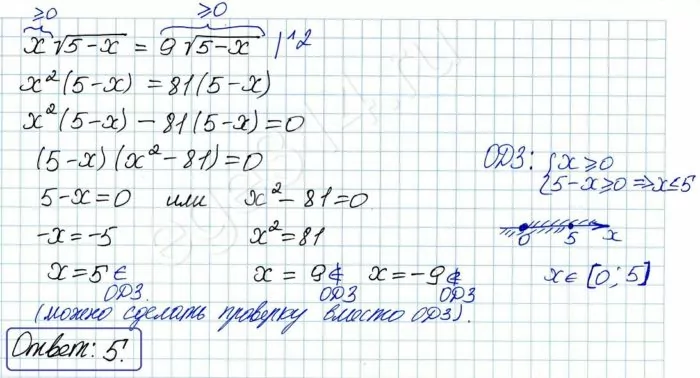 ≥0 ≥0
x√5-x = 9√5-x |^2
x²(5-x) = 81(5-x)
x²(5-x) - 81(5-x)=0
(5-x)(x²-81)=0
5-x=0 или x²-81=0
-x=-5 x²=81
x=5 ∈ ОДЗ. x=9 ∉ ОДЗ x=-9 ∉ ОДЗ
(можно сделать проверку вместо ОДЗ).
Ответ: 5.
ОДЗ: { x≥0
5-x≥0 ⇒ x≤5
0 5 x
x∈[0;5]